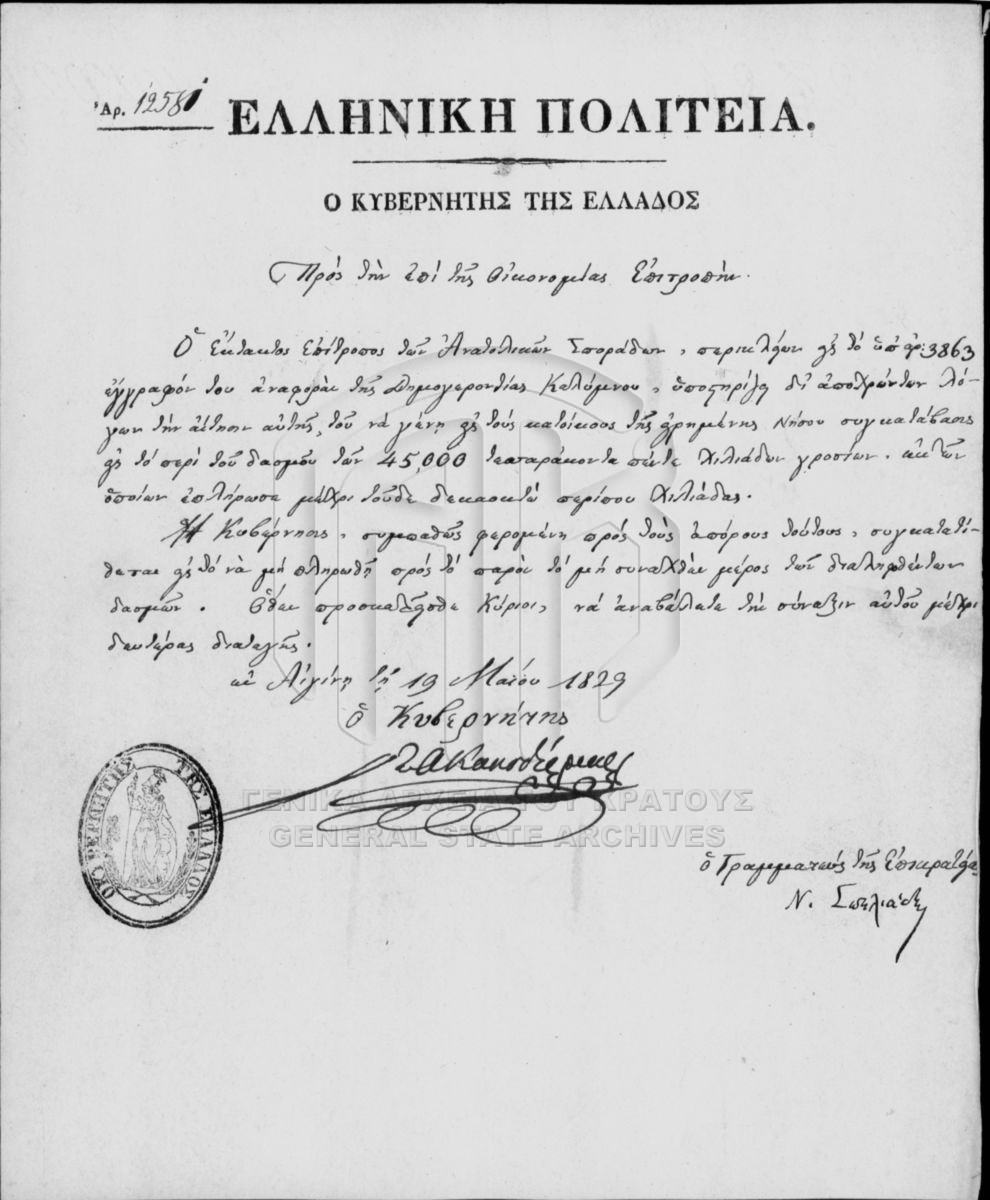 Ἀρ. 12581
ΕΛΛΗΝΙΚΗ ΠΟΛΙΤΕΙΑ.
Ο ΚΥΒΕΡΝΗΤΗΣ ΤΗΣ ΕΛΛΑΔΟΣ
Πρὸς τὴν ἐπὶ τῆς Οἰκονομίας Ἐπιτροπὴν.
Ὁ Ἔκτακτος Ἐπίτροπος τῶν Ἀνατολικῶν Σποράδων, περικλείων εἰς τὸ ὑπ' ἀρ: 3863
ἔγγραφόν του ἀναφορὰν τῆς Δημογεροντίας Καλύμνου, ὑποστηρίζει δι' ἀποχρώντων λό-
γων τὴν αἴτησιν αὐτῆς, τοῦ νὰ γένῃ εἰς τοὺς κατοίκους τῆς εἰρημένης Νήσου συγκατάβασις
εἰς τὸ περὶ τοῦ δασμοῦ τῶν 45,000 τεσσαράκοντα πέντε χιλιάδων γροσίων. ἐκ τῶν
ὁποίων ἐπλήρωσε μέχρι τοῦδε δεκαοκτὼ περίπου χιλιάδας.
Ἡ Κυβέρνησις, συμπαθῶς φερομένη πρὸς τοὺς ἀπόρους τούτους, συγκατατί-
θεται εἰς τὸ νὰ μὴ πληρωθῇ πρὸς τὸ παρὸν τὸ μὴ συναχθὲν μέρος τῶν διαληφθέντων
δασμῶν. Ὅθεν προσκαλεῖσθε Κύριοι, νὰ ἀναβάλετε τὴν σύναξιν αὐτοῦ μέχρι
δευτέρας διαταγῆς.
ἐν Αἰγίνῃ τῇ 19 Μαΐου 1829
ὁ Κυβερνήτης
Ι Α Καποδίστριας
Ο ΚΥΒΕΡΝΗΤΗΣ ΤΗΣ ΕΛΛΑΔΟΣ
ΓΕΝΙΚΑ ΑΡΧΕΙΑ ΤΟΥ ΚΡΑΤΟΥΣ
GENERAL STATE ARCHIVES
ὁ Γραμματεὺς τῆς Ἐπικρατείας
Ν. Σπηλιάδης